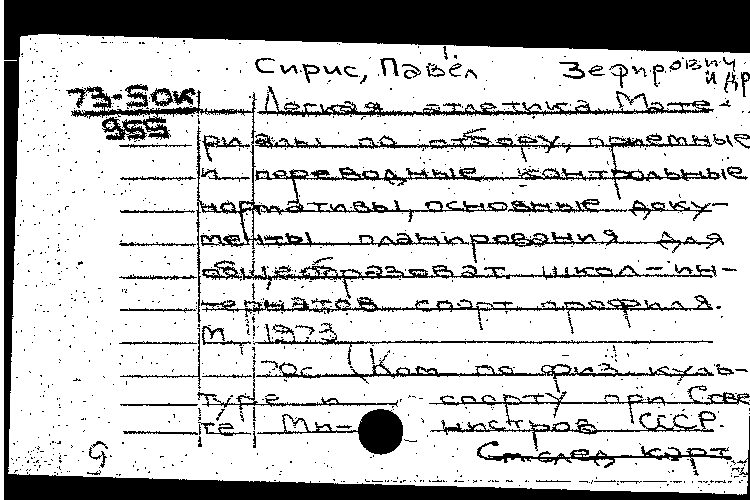 Сирис, Павел Зефирович
и др
73-50к
955
Легкая атлетика. Мате-
риалы по отбору, приемные
и переводные контрольные
нормативы, основные доку-
менты планирования для
общеобразоват. школ-ин-
тернатов спорт. профиля.
М 1973
70с (Ком. по физ. куль-
туре и спорту при Сове
те Ми-нистров СССР.
См. след карт
9